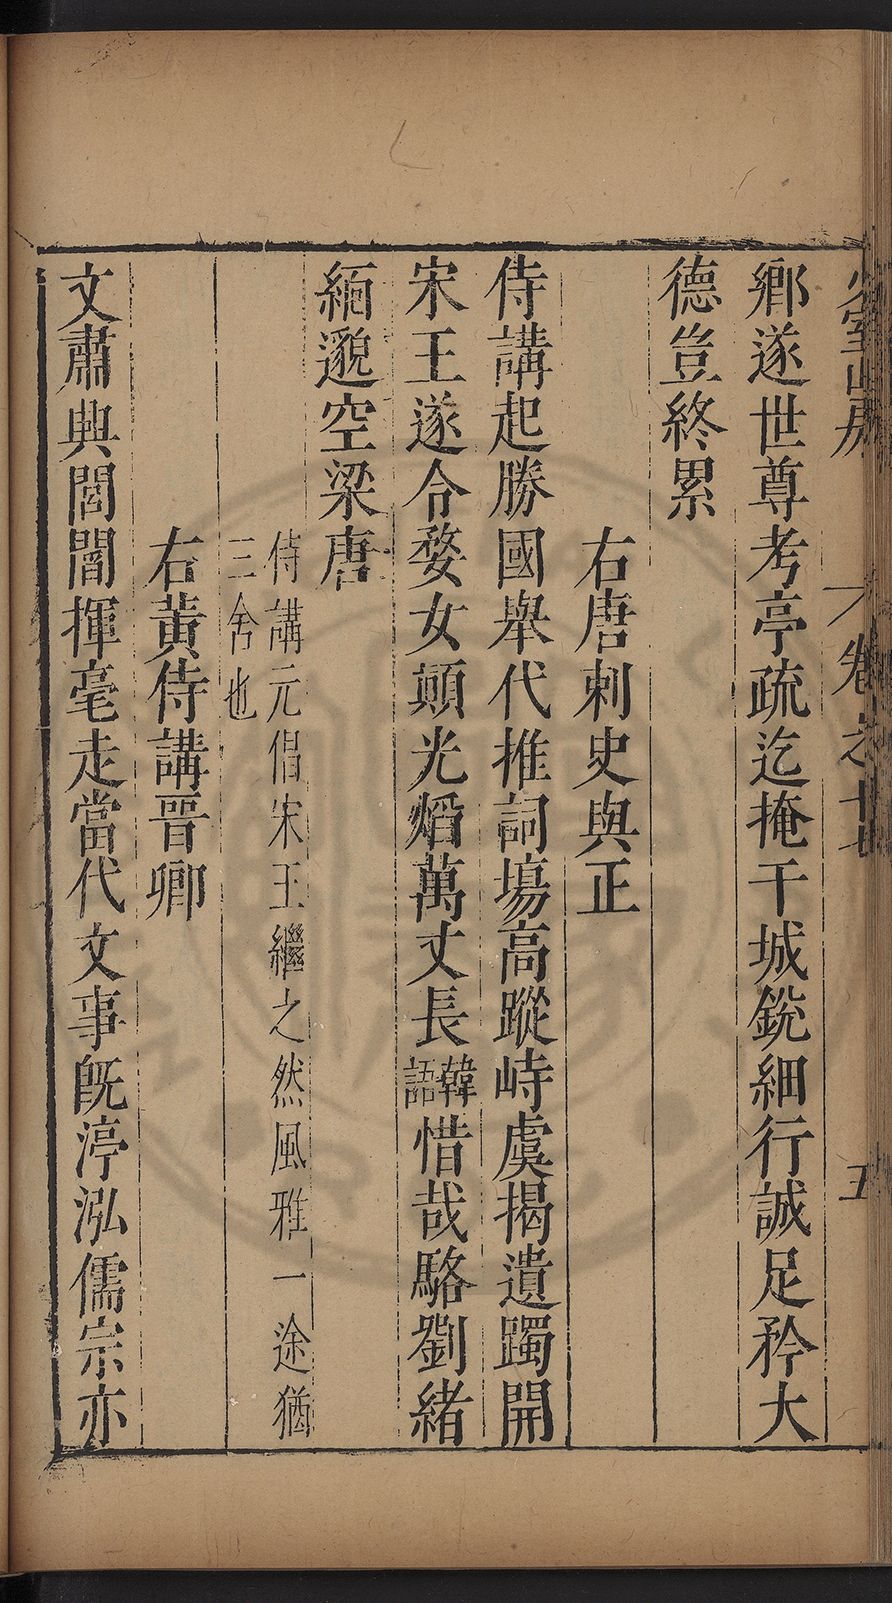 少室山房
卷之十七
五
鄉遂世尊考亭疏迄掩干城銳細行誠足矜大
德豈終累
右唐刺史與正
侍講起勝國舉代推詞塲高蹤峙虞揭遺躅開
宋王遂合婺女顛光熖萬丈長韓語惜哉駱劉緒
緬邈空梁唐侍講元倡宋王繼之然風雅一途猶
三舍也
右黃侍講晉卿
文肅典閣閣揮毫走當代文事旣渟泓儒宗亦